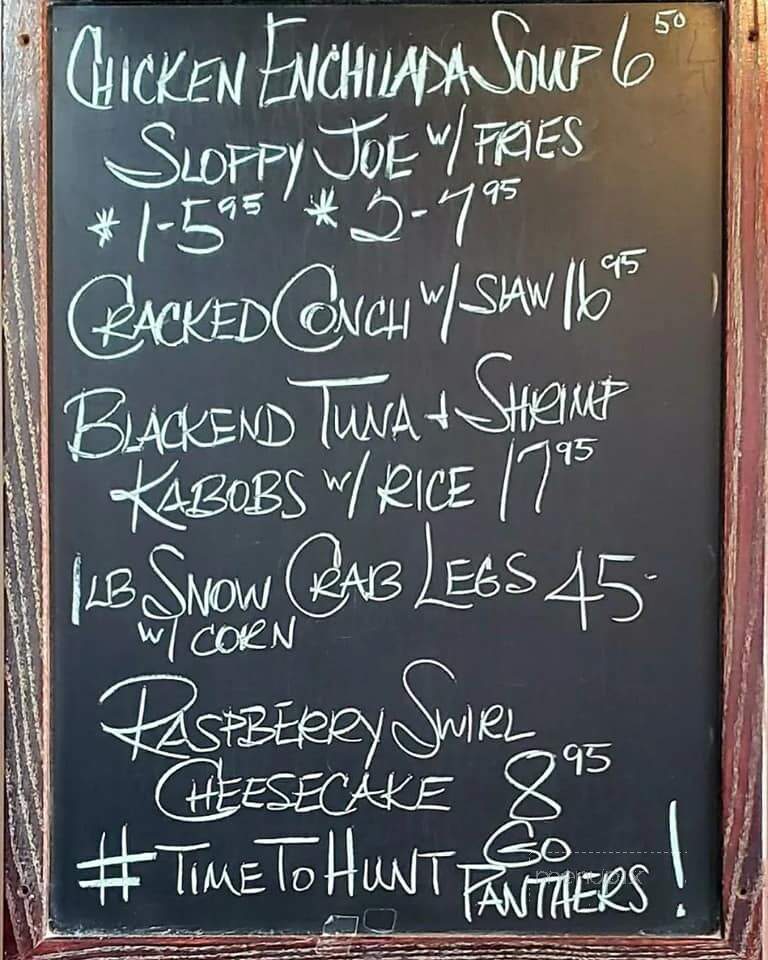 CHICKEN ENCHILADA SOUP 6 50
SLOPPY JOE W/ FRIES
*1-5 95 *2-7 95
CRACKED CONCH W/ SLAW 16 95
BLACKEND TUNA + SHRIMP
KABOBS W/ RICE 17 95
1LB SNOW CRAB LEGS 45-
W/ CORN
RASPBERRY SWIRL
CHEESECAKE 8 95
#TIMETOHUNT GO
PANTHERS!